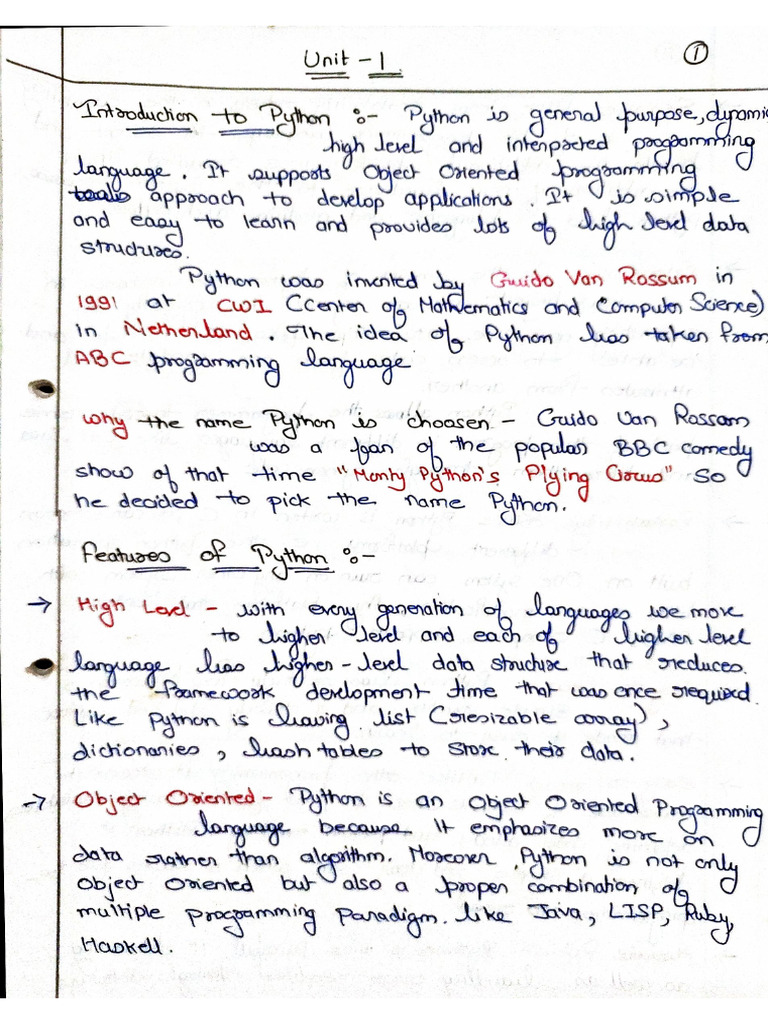 Unit - 1
1
Introduction to Python :- Python is general purpose, dynamic
high level and interpreted programming
language. It supports Object Oriented programming
approach to develop applications. It is simple
and easy to learn and provides lots of high level data
structures.
Python was invented by Guido Van Rossum in
1991 at CWI (Center of Mathematics and Computer Science)
in Netherland. The idea of Python has taken from
ABC programming language
Why the name Python is choosen - Guido Van Rossam
was a fan of the popular BBC comedy
show of that time "Monty Python's Flying Circus" So
he decided to pick the name Python.
Features of Python :-
→ High Level - with every generation of languages we move
to higher level and each of higher level
language has higher-level data structure that reduces
the framework development time that was once required.
Like Python is having list (resizable array),
dictionaries, hash tables to store their data.
→ Object Oriented - Python is an Object Oriented Programming
language because It emphasizes more on
data rather than algorithm. Moreover, Python is not only
Object Oriented but also a proper combination of
multiple programming Paradigm. like Java, LISP, Ruby,
Haskell.